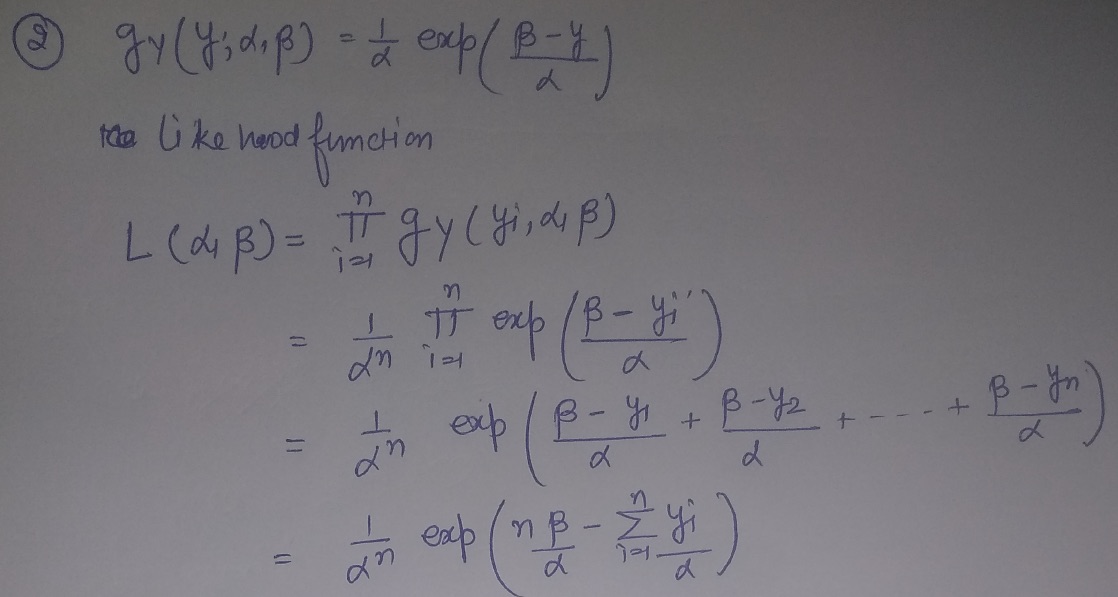 ② gY(y; α, β) = 1/α exp((β - y)/α)
Like hood function
L(α, β) = ∏_{i=1}^{n} gY(yi, α, β)
= 1/α^n ∏_{i=1}^{n} exp((β - yi)/α)
= 1/α^n exp((β - y1)/α + (β - y2)/α + ---- + (β - yn)/α)
= 1/α^n exp(n β/α - ∑_{i=1}^{n} yi/α)